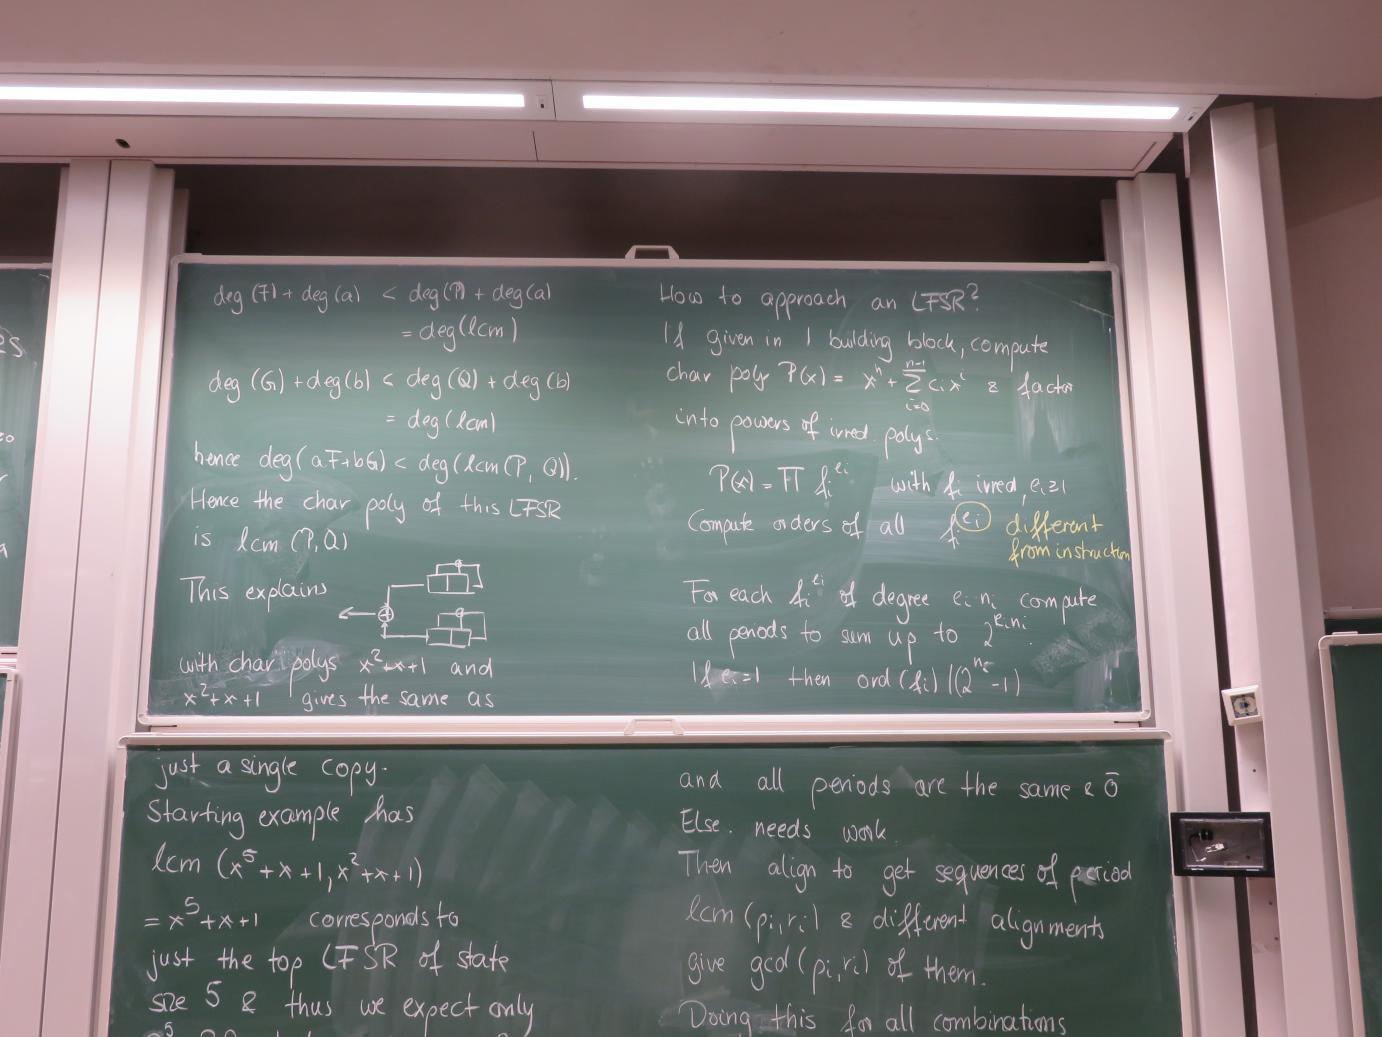 deg (F) + deg (a) < deg(P) + deg(a)
= deg(lcm)
deg (G) + deg(b) < deg(Q) + deg(b)
= deg(lcm)
hence deg(aF+bG) < deg(lcm(P, Q)).
Hence the char poly of this LFSR
is lcm (P,Q)
This explains
with char polys x²+x+1 and
x²+x+1 gives the same as
just a single copy.
Starting example has
lcm (x⁵+x+1, x²+x+1)
= x⁵+x+1 corresponds to
just the top LFSR of state
size 5 & thus we expect only
How to approach an LFSR?
If given in 1 building block, compute
char poly P(x) = xⁿ + Σ_{i=0}^{n-1} cᵢxⁱ & factor
into powers of irred. polys.
P(x) = Π fᵢ^{eᵢ} with fᵢ irred, eᵢ≥1
Compute orders of all f^{eᵢ} different
from instruction
For each fᵢ^{eᵢ} of degree eᵢnᵢ compute
all periods to sum up to 2^{eᵢnᵢ}.
If eᵢ=1 then ord(fᵢ) | (2^{nᵢ}-1)
and all periods are the same & ō
Else. needs work.
Then align to get sequences of period
lcm(pᵢ,rᵢ) & different alignments
give gcd(pᵢ,rᵢ) of them.
Doing this for all combinations